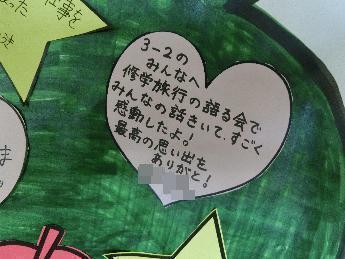 3-2の
みんなへ
修学旅行の語る会で
みんなの話きいて、すごく
感動したよ!
最高の思い出を
ありがと!
仕事を
ま